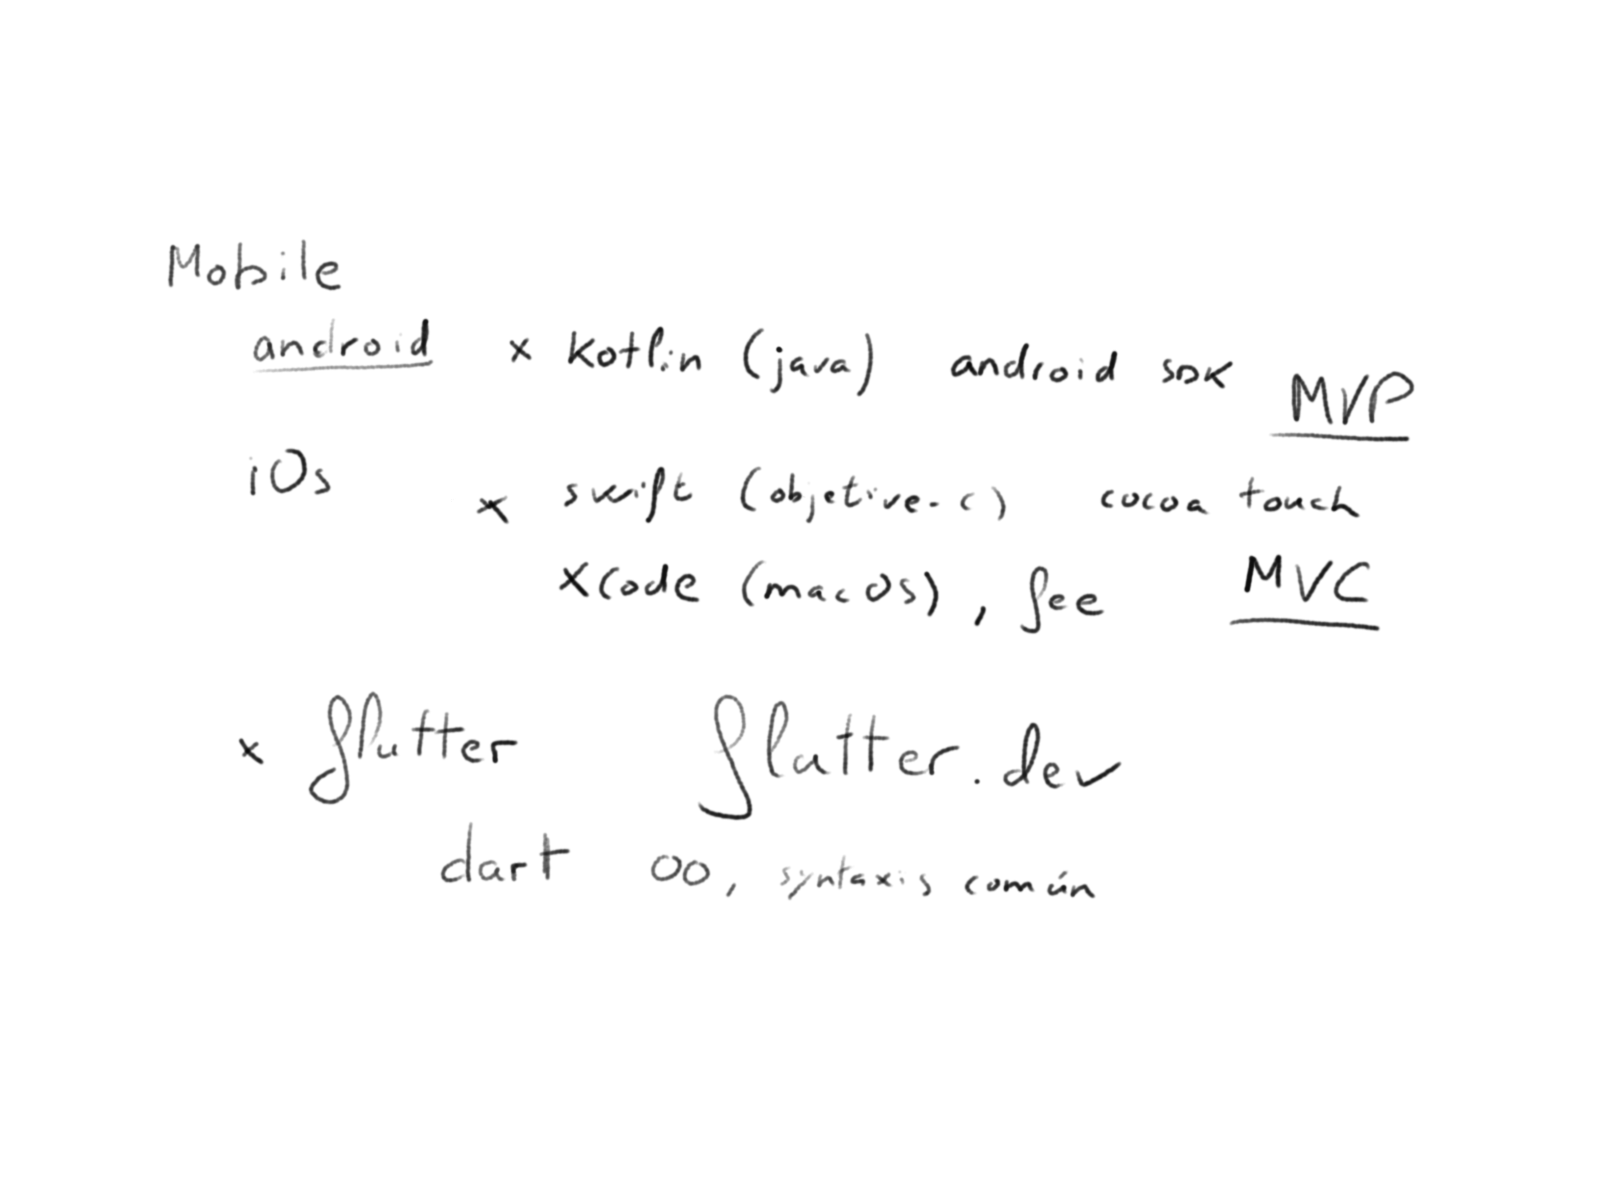 Mobile
android x kotlin (java) android SDK MVP
iOs x swift (objetive-c) cocoa touch
xcode (macOS), fee MVC
x flutter flutter.dev
dart OO, syntaxis común